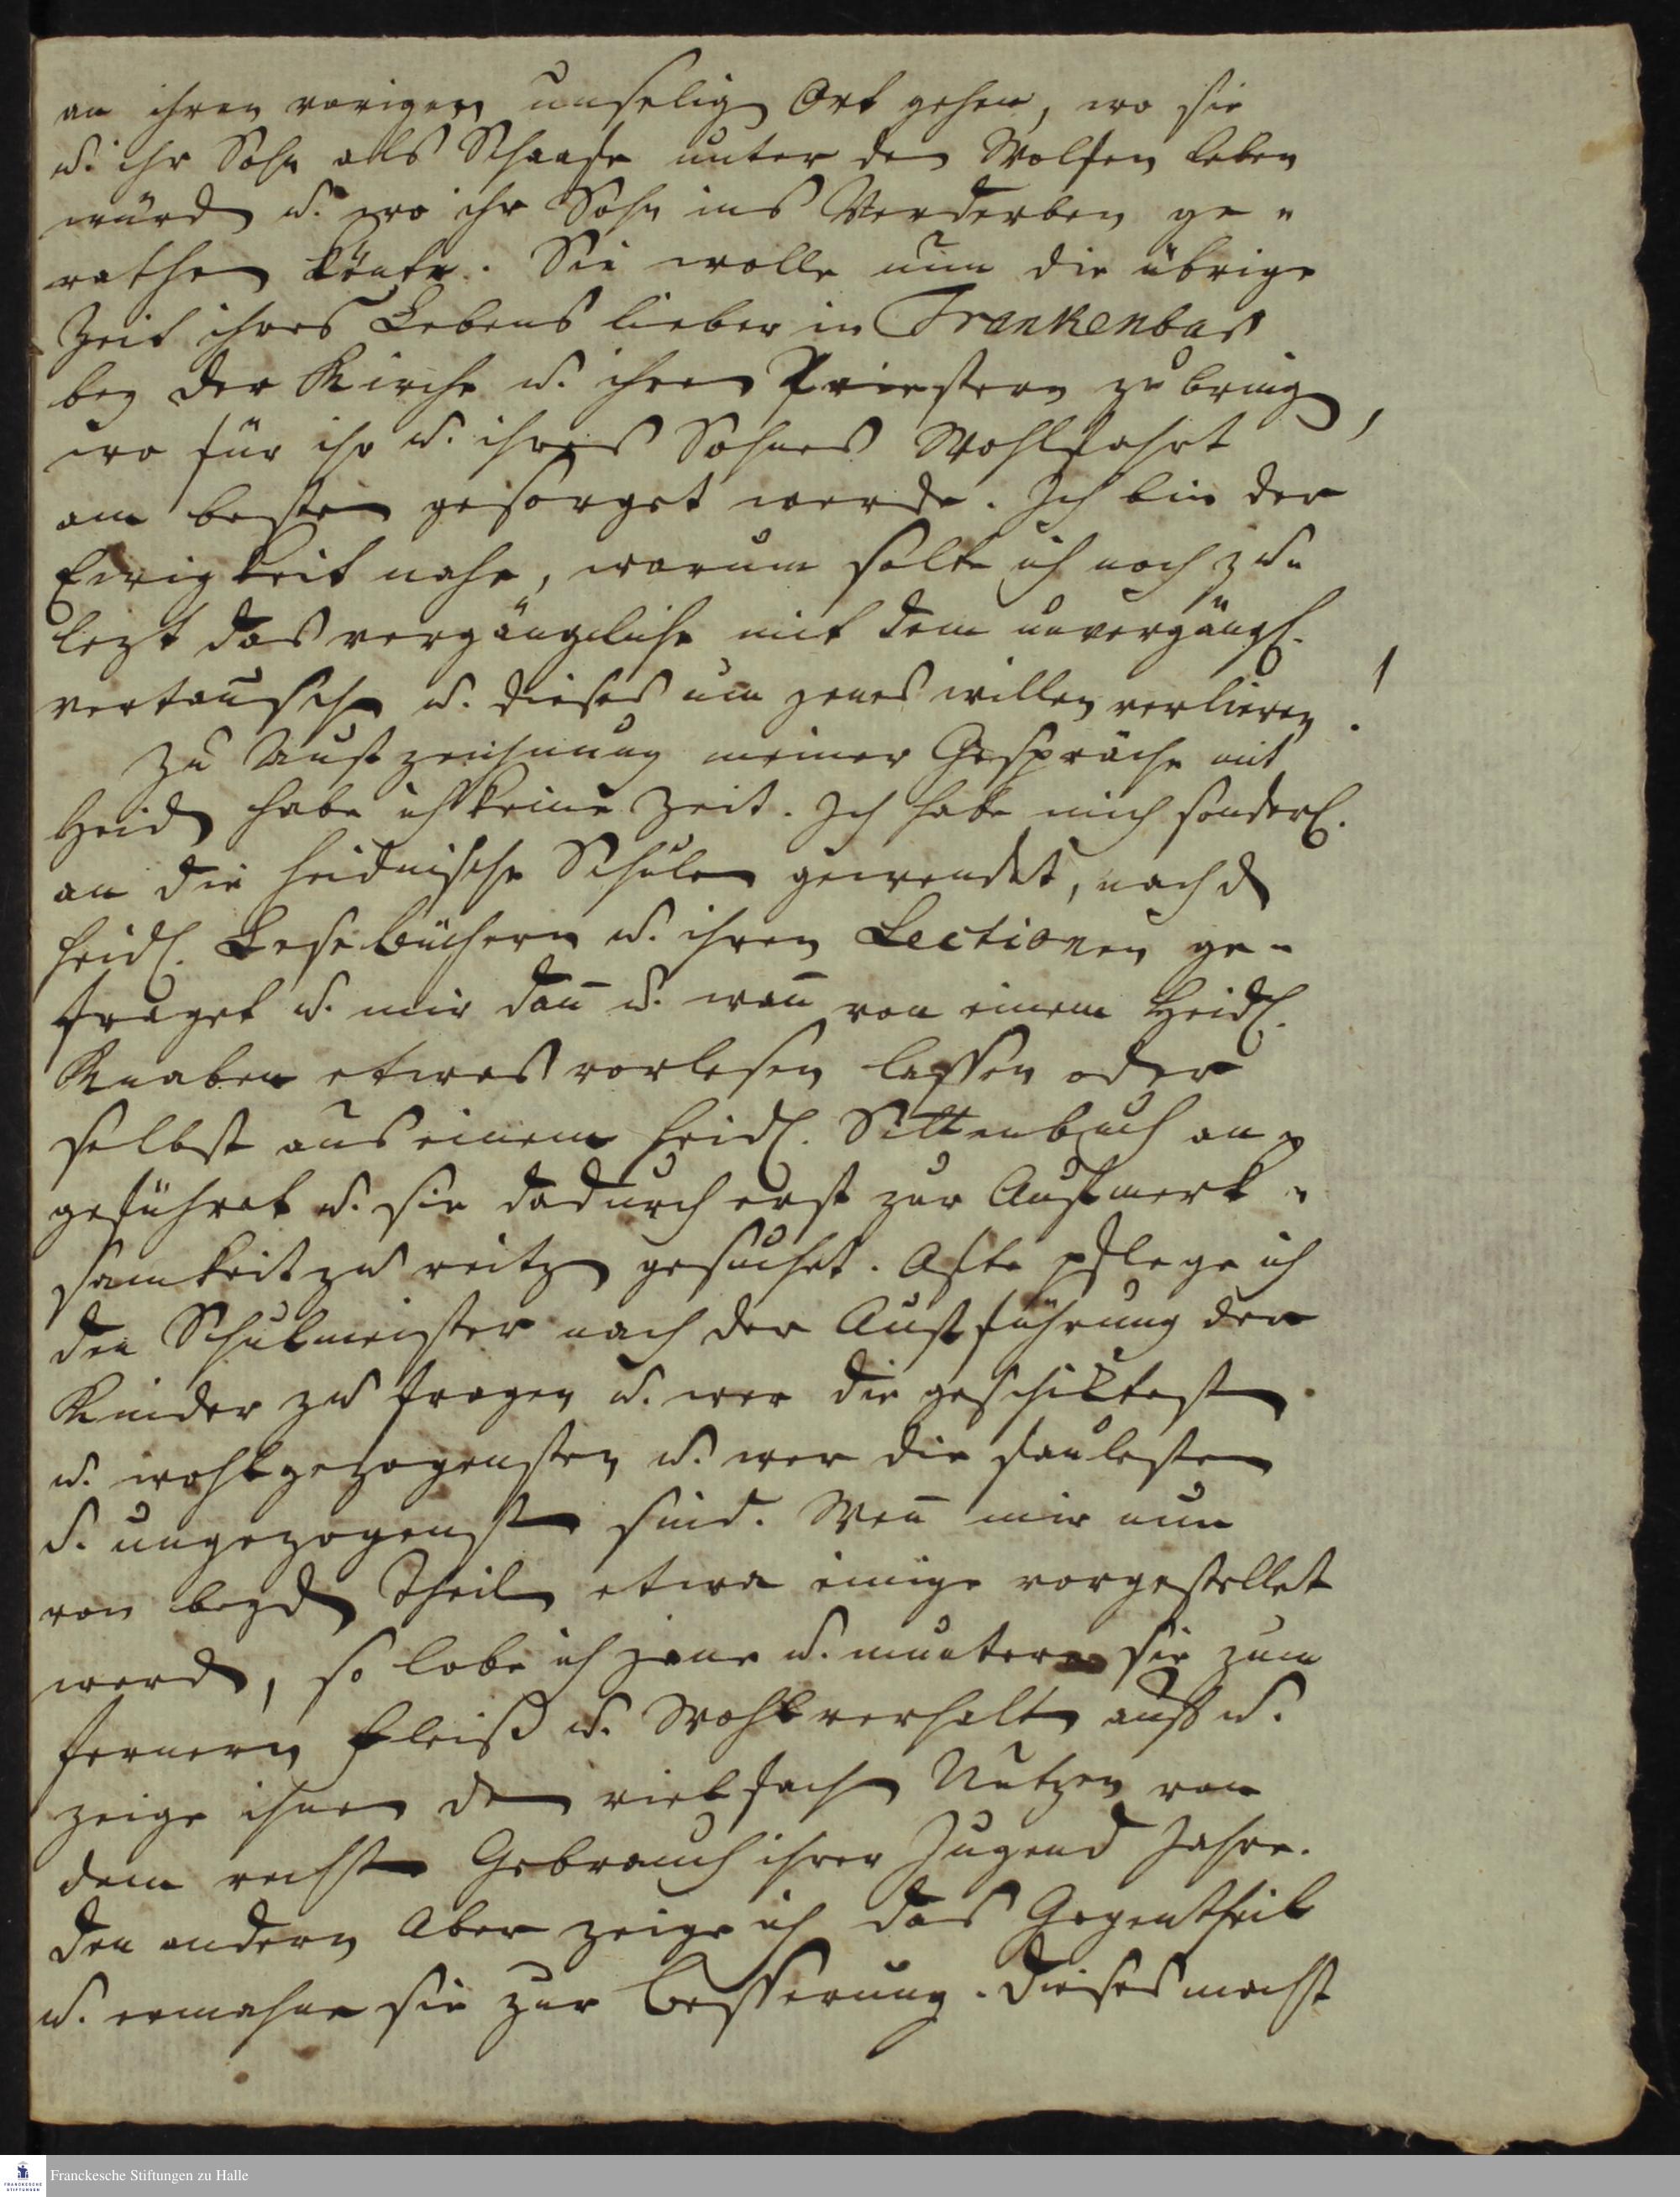 an ihren vorigen unselig Ort gehen, wo sie
u. ihr Sohn als Schaafe unter den Wolfen leben
würd u. wo ihr Sohn ins Verderben ge-
rathen könte. Sie wolle nun die übrige
Zeit ihres Lebens lieber in Trankenbar
bey der Kirche u. ihren Priestern zu bring,
wo für ihr u. ihres Sohnes Wohlfahrt
am besten gesorget werde. Ich bin der
Ewigkeit nahe, warum solte ich noch zu-
lezt das vergängliche mit dem unvergängl.
vertausche u. dieses um jenes willen verlieren.!
Zu Aufzeichnung meiner Gespräche mit
Heid habe ich keine Zeit. Ich habe mich sonderl.
an die heidnische Schulen gewendet, nach d
heidl. Lesebüchern u. ihren Lectionen ge-
fraget u. mir dañ u. wañ von einem Heidl.
Knaben etwas vorlesen lassen oder
selbst aus einem heidl. Sittenbuch an-
geführet u. sie dadurch erst zur Aufmerk-
samkeit zu reitz gesuchet. Ofte pflege ich
den Schulmeister nach der Aufführung der
Kinder zu fragen u. wer die geschiktest
u. wohlgezogensten u. wer die faulesten
u. ungezogensten sind. Weñ mir nun
von beyd Theil etwa einige vorgestellet
werd, so lobe ich jene u. muntere sie zum
fernern Fleiß u. Wohlverhalt auf u.
zeige ihnen den vielfach Nutzen von
dem rechten Gebrauch ihrer Jugend Jahre.
den andern Aber zeige ich das Gegentheil
u. ermahne sie zur Besserung. Dieses macht
Franckesche Stiftungen zu Halle
FRANCKESCHE
STIFTUNGEN